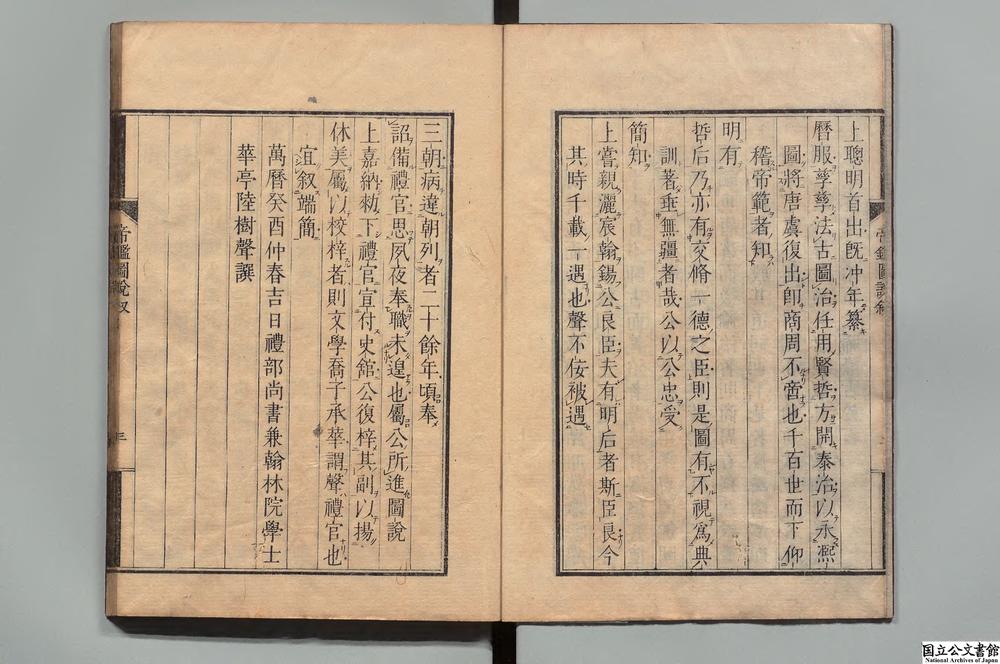 上聰明首出旣冲年纂
曆服孳孳法古圖治任用賢哲方開泰治以永熙
圖將唐虞復出卽商周不啻也千百世而下仰
稽帝範者知
明有
哲后乃亦有交脩一德之臣則是圖有不視爲典
訓著垂無疆者哉公以公忠受
簡知
上嘗親灑宸翰錫公良臣夫有明后者斯臣良今
其時千載一遇也聲不佞被遇
帝鑑圖說叙
三朝病違朝列者二十餘年頃奉
詔備禮官思夙夜奉職未遑也屬公所進圖說
上嘉納勑下禮官宣付史館公復梓其副以揚
休美屬以校梓者則文學喬子承華謂聲禮官也
宜叙端簡
萬曆癸酉仲春吉日禮部尚書兼翰林院學士
華亭陸樹聲譔
帝鑑圖說叙
三
国立公文書館
National Archives of Japan